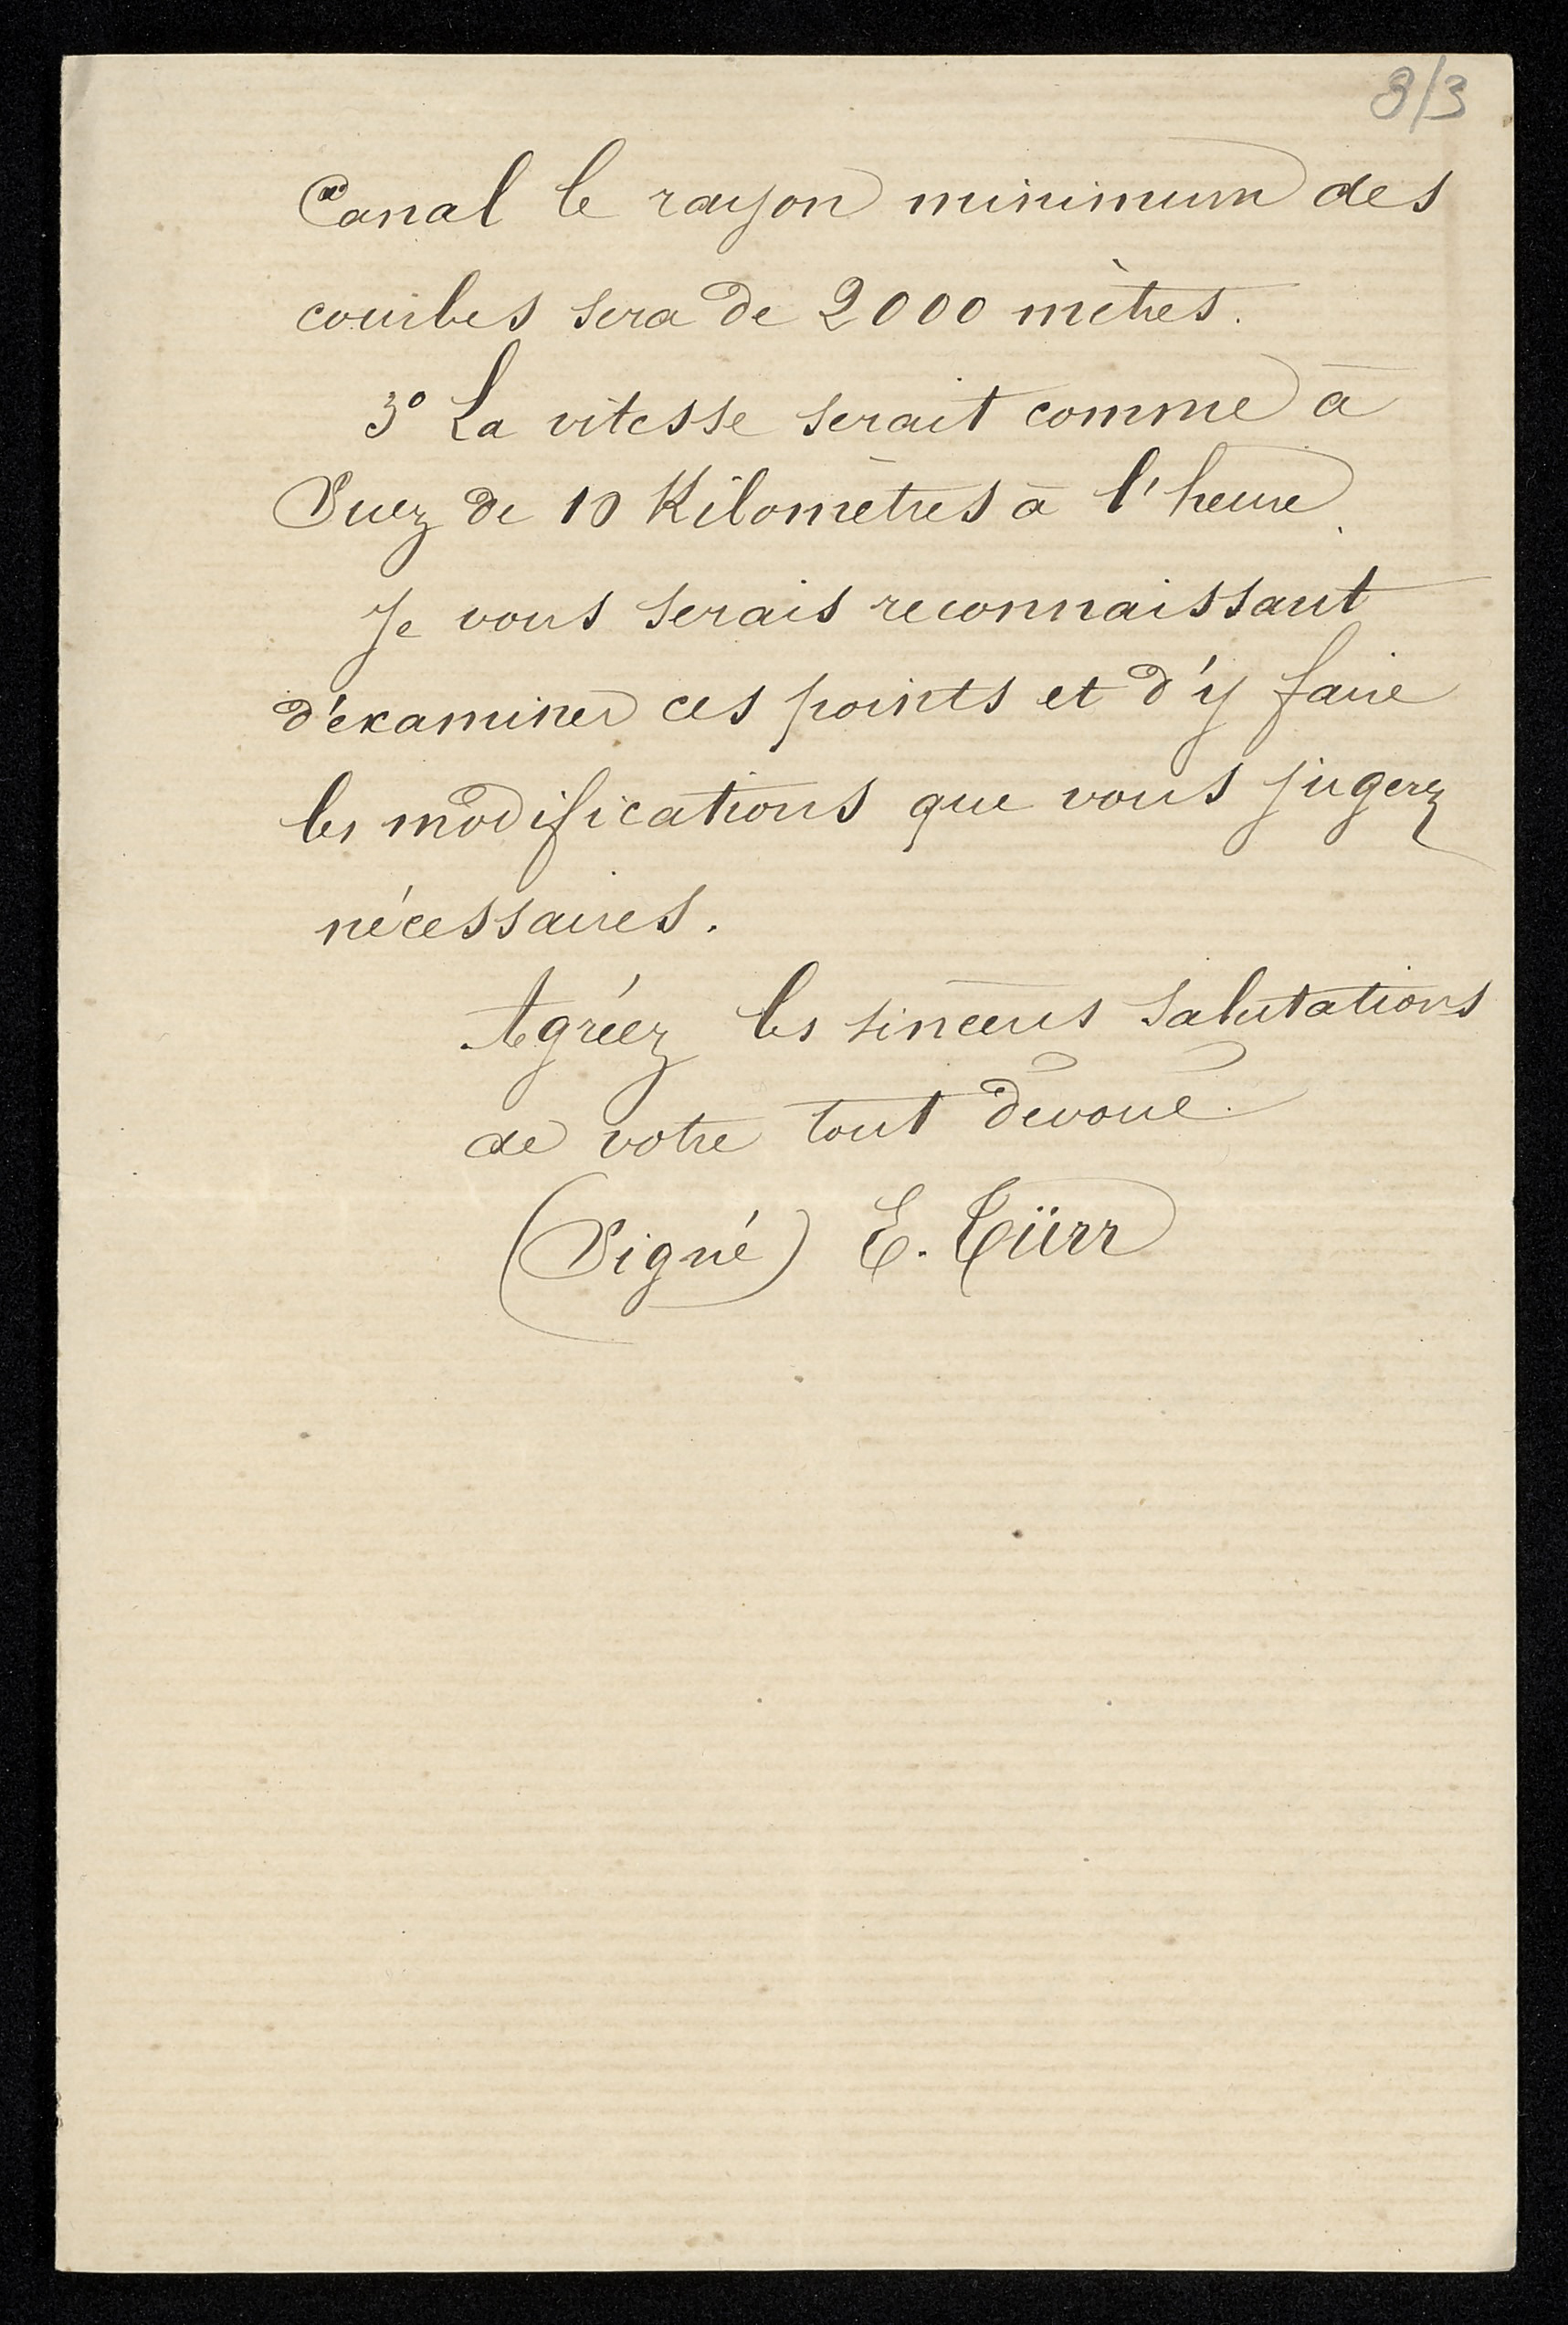 8/3
Canal le rayon minimum des
courbes sera de 2000 mètres.
3º La vitesse serait comme à
Suez de 10 Kilomètres à l'heure.
Je vous serais reconnaissant
d'examiner ces points et d'y faire
les modifications que vous jugerez
nécessaires.
Agréez les sincères salutations
de votre tout dévoué.
(Signé) E. Türr